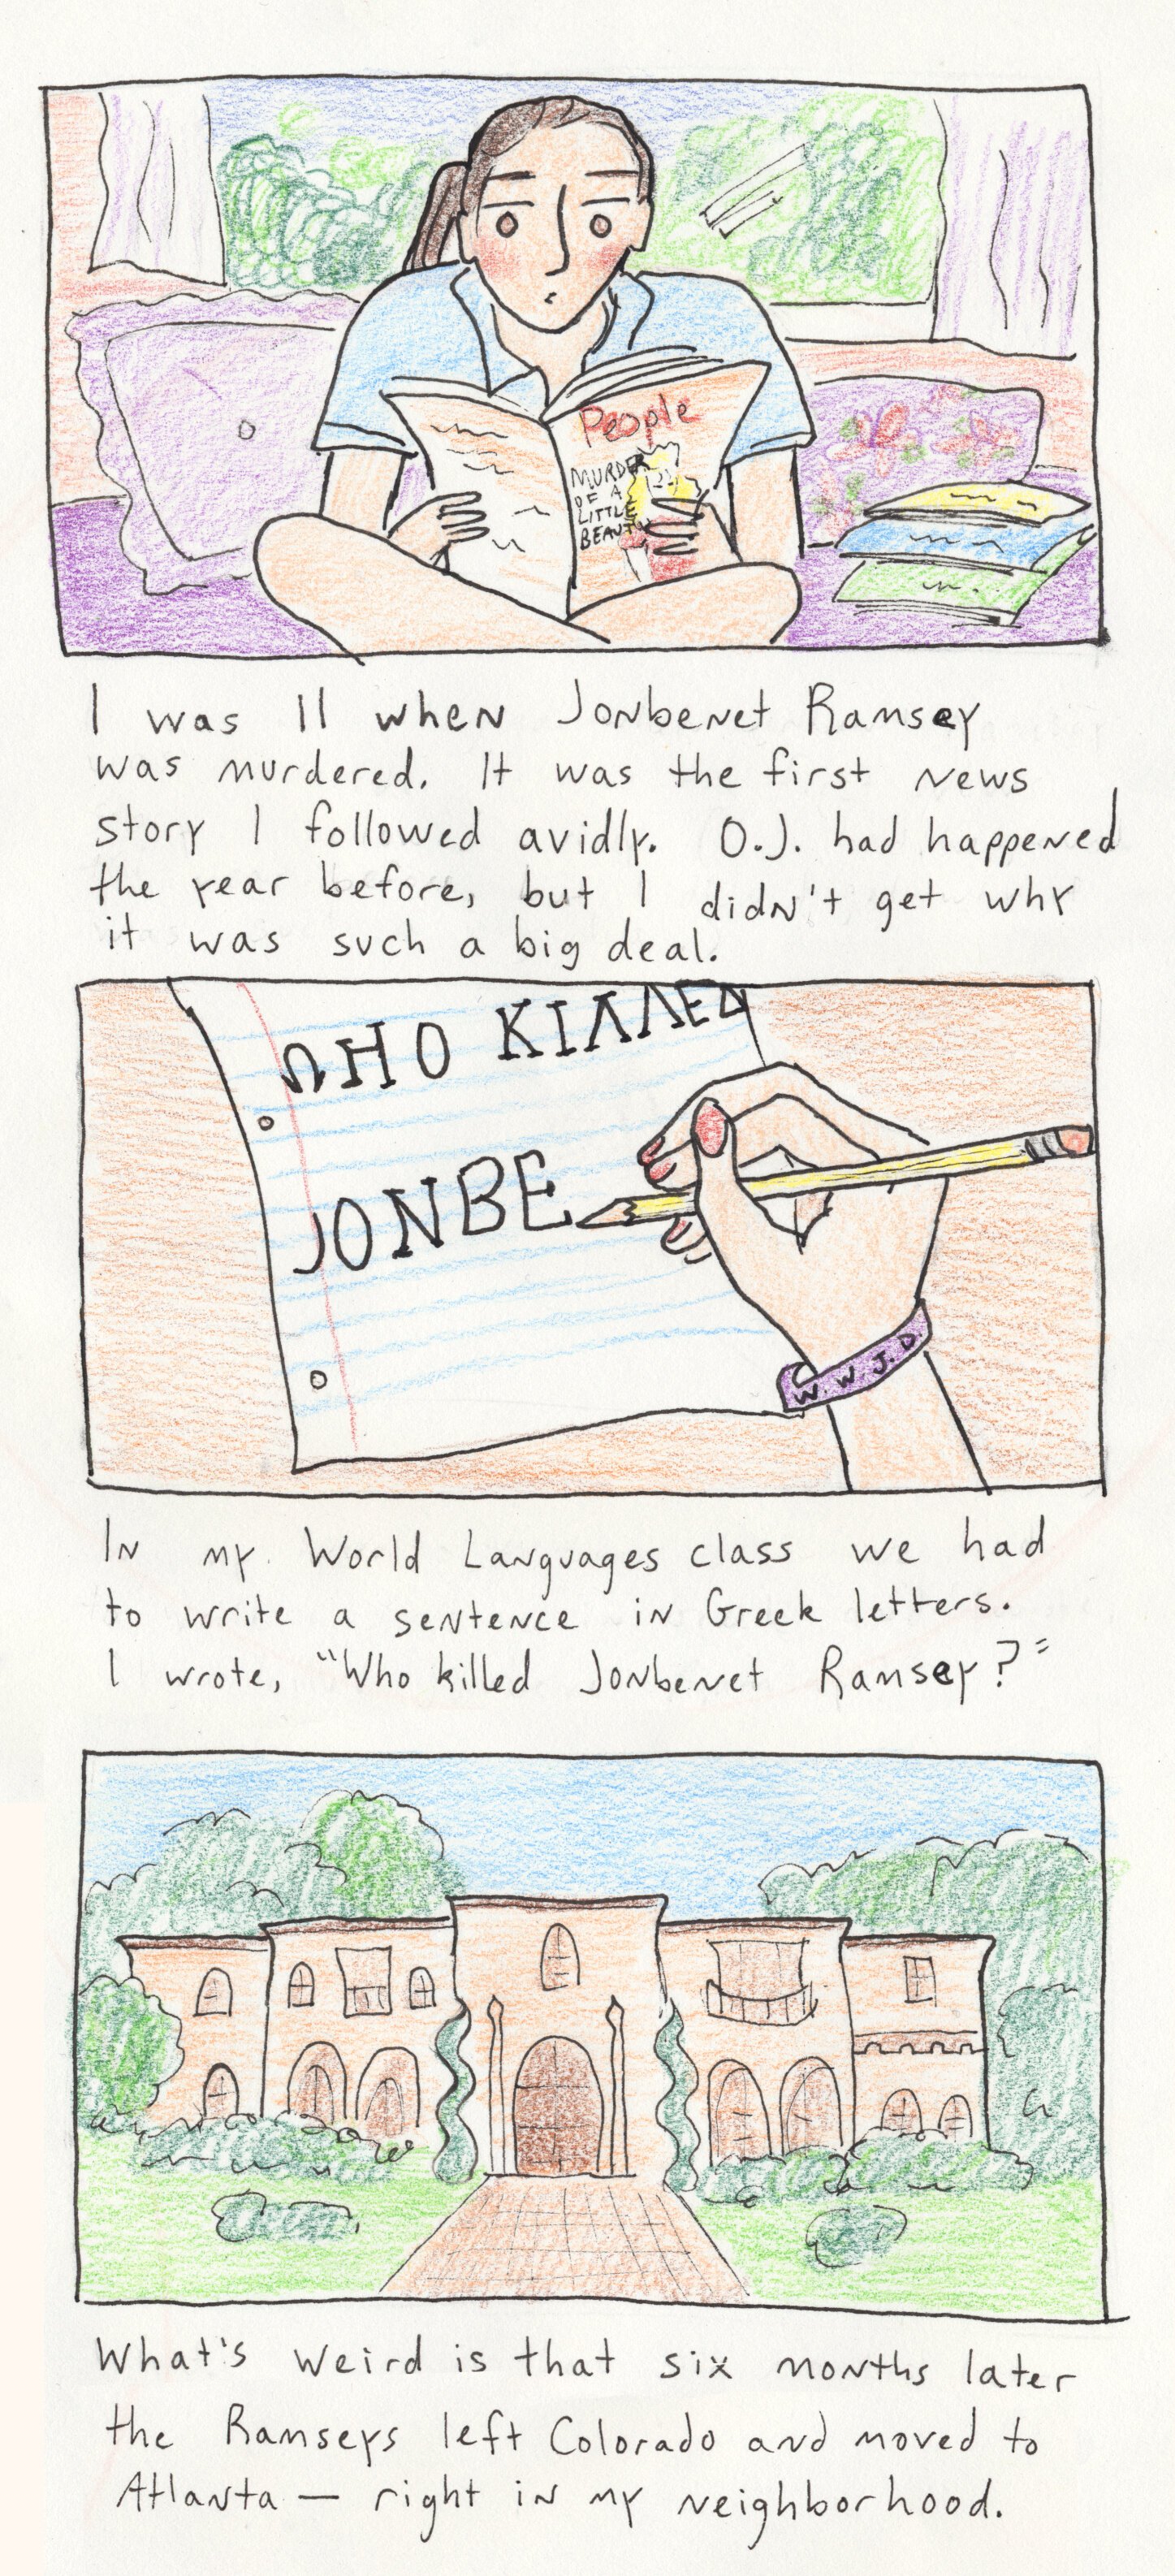 People
MURDER
OF A
LITTLE
BEAUTY
I was 11 when Jonbenet Ramsey
was murdered. It was the first news
story I followed avidly. O.J. had happened
the year before, but I didn't get why
it was such a big deal.
ΩHO KIΛΛEΔ
JONBE
W.W.J.D.
In my World Languages class we had
to write a sentence in Greek letters.
I wrote, "Who killed Jonbenet Ramsey?"
What's weird is that six months later
the Ramseys left Colorado and moved to
Atlanta — right in my neighborhood.